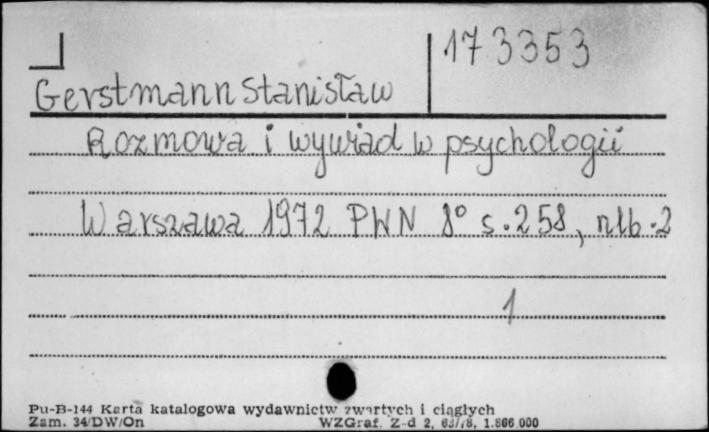 173353
Gerstmann Stanisław
Rozmowa i wywiad w psychologii
Warszawa 1972 PWN 8° s. 258, nlb. 2
1
Pu-B-144 Karta katalogowa wydawnictw zwartych i ciągłych
Zam. 34/DW/On WZGraf. Z-d 2, 63/78, 1.866.000